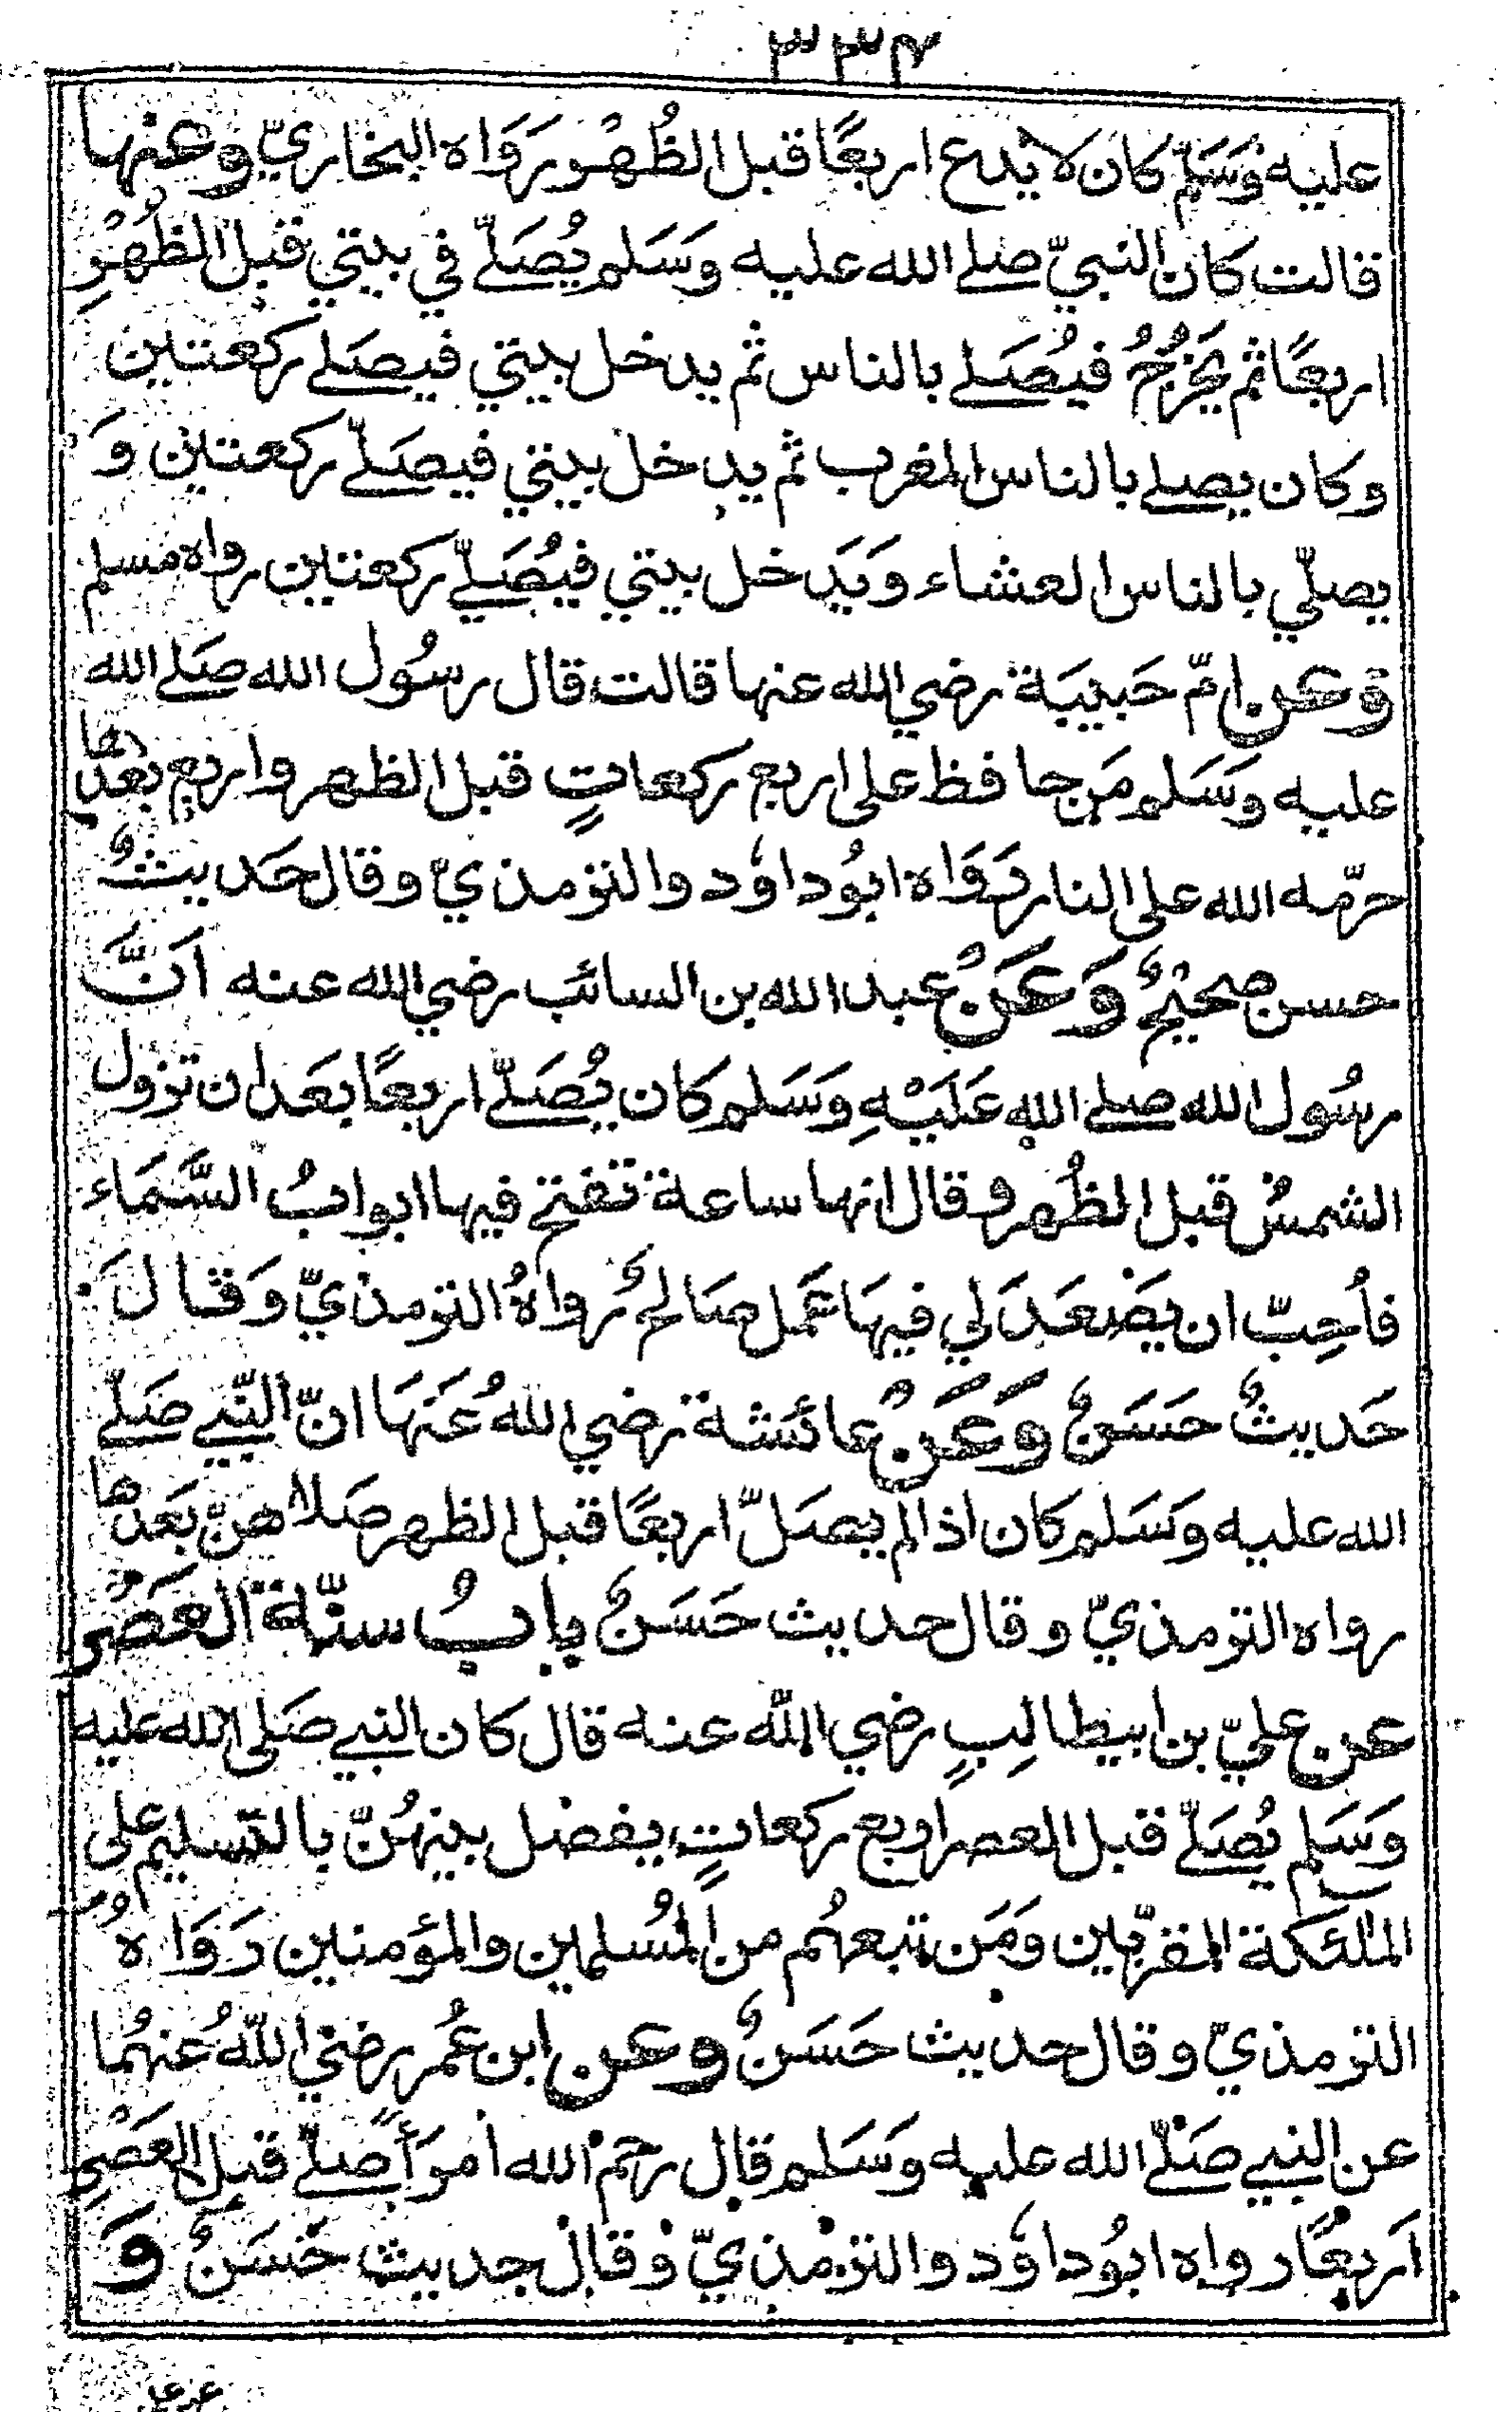 ٣٣٤
عليه وَسَلَّم كان لا يدع اربعًا قبل الظُهْر رَوَاه البخاريّ وعنها
قالت كان النبيّ صلے الله عليه وَسَلم يُصَلّے في بيتي قبل الظُهْرِ
اربعًا ثم يَخْرُجُ فيُصَلے بالناس ثم يدخل بيتي فيصَلے ركعتين
وكان يصلے بالناس المغرب ثم يدخل بيتي فيصَلّے ركعتين وَ
يصلّي بالناس العشاء وَيَدخل بيتي فيُصَلّے ركعتين رواه مسلم
وَعن امّ حَبيبَة رضي الله عنها قالت قال رسُول الله صَلے الله
عليه وَسَلم مَن حافظ على اربع ركعاتٍ قبل الظهر واربع بعدها
حرّمه الله على النار رَوَاه ابُو داوٗد والترمذيّ وقال حَديثٌ
حسن صحيحٌ وَعَنْ عبد الله بن السائب رضي الله عنه اَنَّ
رسُول الله صلے الله عَلَيْهِ وَسَلم كان يُصَلّے اربعًا بعَد ان تزول
الشمسُ قبل الظُهر وقال انها ساعة تفتح فيها ابوابُ السَّمَاء
فاُحِبّ ان يَصْعَدَ لي فيهَا عَمَل صَالحٌ رواهُ الترمذيّ وَقَالَ
حَديثٌ حَسَنٌ وَعَنْ عائشة رضي اللهُ عَنهَا انّ النّبے صَلّے
الله عليه وَسَلم كان اذا لم يصَلّ اربعًا قبل الظهر صَلاهنّ بَعَدها
رواه الترمذيّ وقال حديث حَسَنٌ بابُ سنّة العَصْر
عن عليّ بن ابيطالبٍ رضي اللّه عنه قال كان النبے صَلى الله عليه
وَسَلم يُصَلّے قبل العصر اربع ركعاتٍ يفصل بينهُنّ بالتسليم على
الملٰئكة المقرّبين وَمَن تبعهُم من المُسلمين والمؤمنين رَوَاهُ
الترمذيّ وقال حديث حَسَنٌ وعن ابن عُمر رضي اللّهُ عنهُما
عن النبے صَلّے الله عليه وَسَلم قال رحم الله امرَأً صلّے قبل العَصْرِ
اَربعًا رواه ابُو داوٗد والترمذيّ وقال حديث حَسَنٌ وَ
عن علي